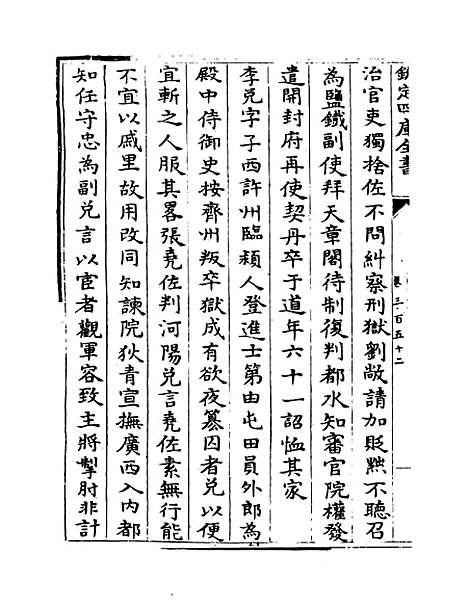 欽定四庫全書
卷三百五十二
治官吏獨捨佐不問糾察刑獄劉敞請加貶黜不聽召
為鹽鐵副使拜天章閣待制復判都水知審官院權發
遣開封府再使契丹卒于道年六十一詔恤其家
李兌字子西許州臨頴人登進士第由屯田員外郎為
殿中侍御史按齊州叛卒獄成有欲夜簒囚者兌以便
宜斬之人服其畧張堯佐判河陽兌言堯佐素無行能
不宜以戚里故用改同知諫院狄青宣撫廣西入內都
知任守忠為副兌言以宦者觀軍容致主將掣肘非計